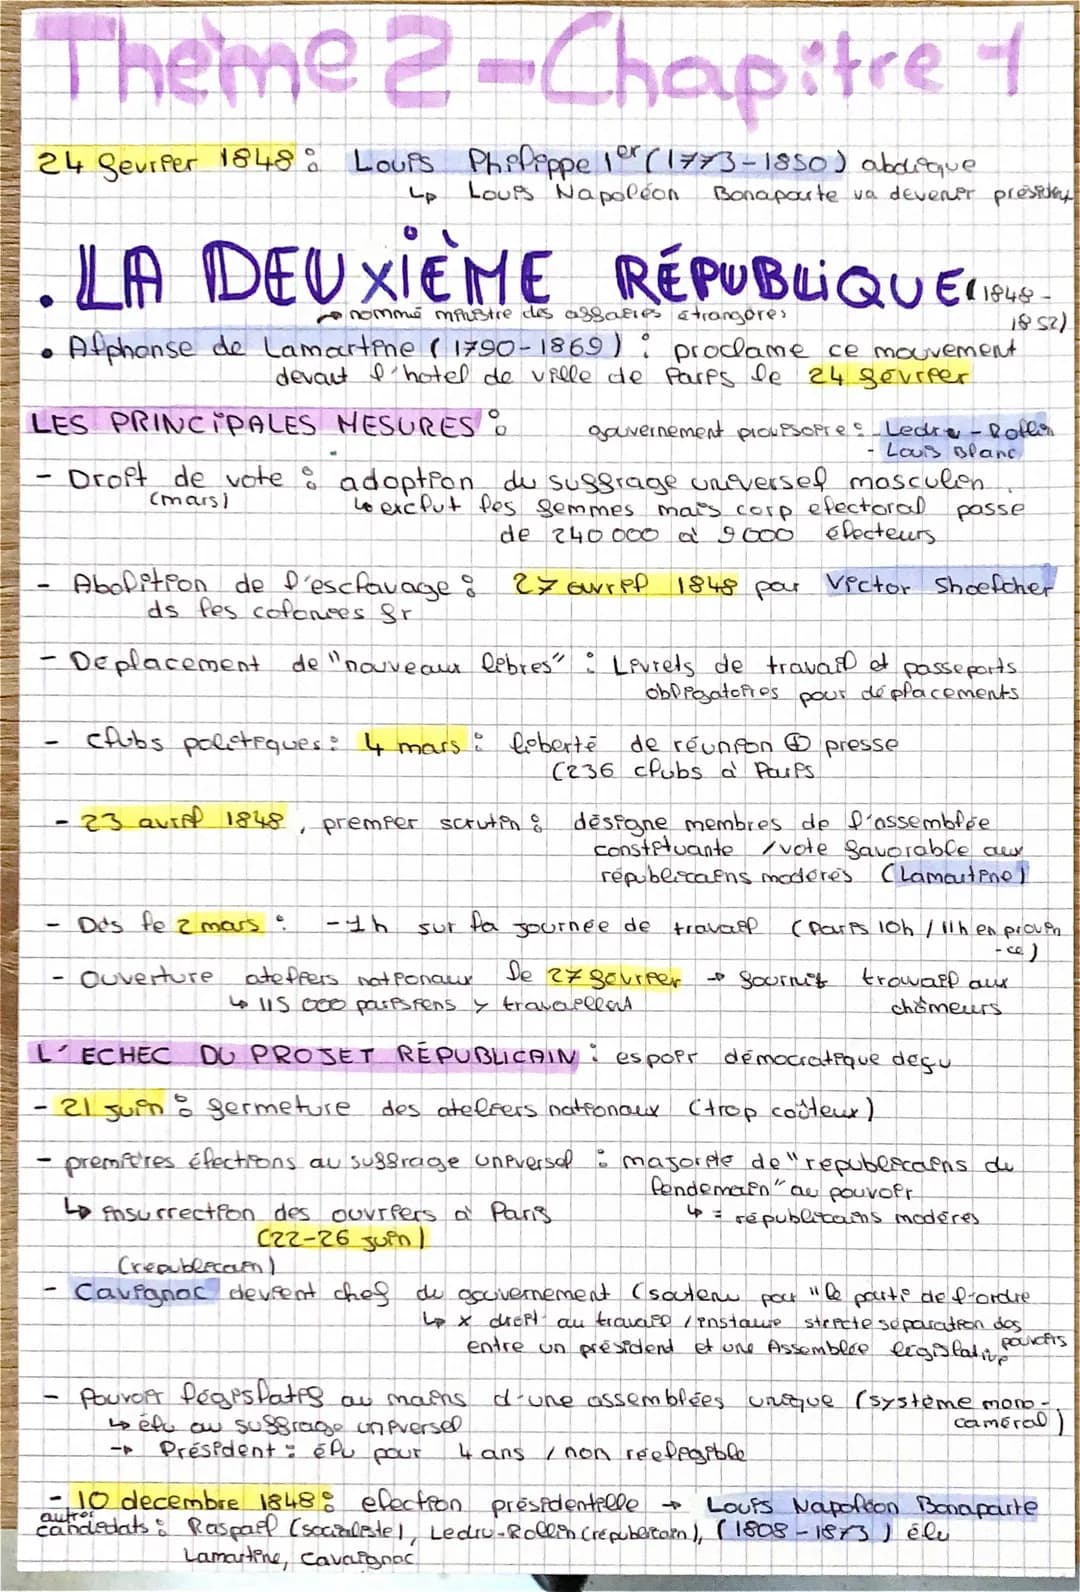 Thème 2 - Chapitre 1
24 fevrier 1848 : Louis Philippe 1er (1773-1850) abdique
↳ Louis Napoléon Bonaparte va devenir président
. LA DEUXIÈME RÉPUBLIQUE (1848-
1852)
→ nommé ministre des affaires étrangères
• Alphonse de Lamartine (1790-1869) : proclame ce mouvement
devant l'hotel de ville de Paris le 24 février
LES PRINCIPALES MESURES :
gouvernement provisoire : - Ledru-Rollin
- Louis Blanc
- Droit de vote : adoption du suffrage universel masculin.
(mars)
↳ exclut les femmes mais corp electoral passe
de 240 000 à 9000 électeurs
- Abolition de l'esclavage : 27 avril 1848 par Victor Shoelcher
ds les colonies fr
- Deplacement de "nouveaux libres" : Livrets de travail et passeports
obligatoires pour déplacements
- Clubs politiques : 4 mars : liberté de réunion ⊕ presse
(236 clubs à Paris
- 23 avril 1848, premier scrutin : désigne membres de l'assemblée
constituante / vote favorable aux
républicains modérés (Lamartine)
- Dès le 2 mars : -1h sur la journée de travail (Paris 10h / 11h en provin
-ce)
- Ouverture ateliers nationaux le 27 février → fournit travail aux
chômeurs
↳ 115 000 parisiens y travaillent
L'ECHEC DU PROJET RÉPUBLICAIN : espoir démocratique deçu
- 21 juin : fermeture des ateliers nationaux (trop coûteux)
- premières élections au suffrage universel : majorité de "republicains du
lendemain" au pouvoir
↳ = républicains modérés
↳ insurrection des ouvriers à Paris
(22-26 juin)
(republicain)
- Cavignac devient chef du gouvernement (soutenu par "le parti de l'ordre
↳ x droit au travail / instaure stricte séparation des
pouvoirs
entre un président et une Assemblée législative
- Pouvoir législatif au mains d'une assemblées unique (système mono-
caméral)
↳ élu au suffrage universel
→ Président : élu pour 4 ans / non reeligible
- 10 decembre 1848 : election présidentielle → Louis Napoléon Bonaparte
(1808-1873) élu
autres
candidats : Raspail (socialiste), Ledru-Rollin (republicain),
Lamartine, Cavaignac